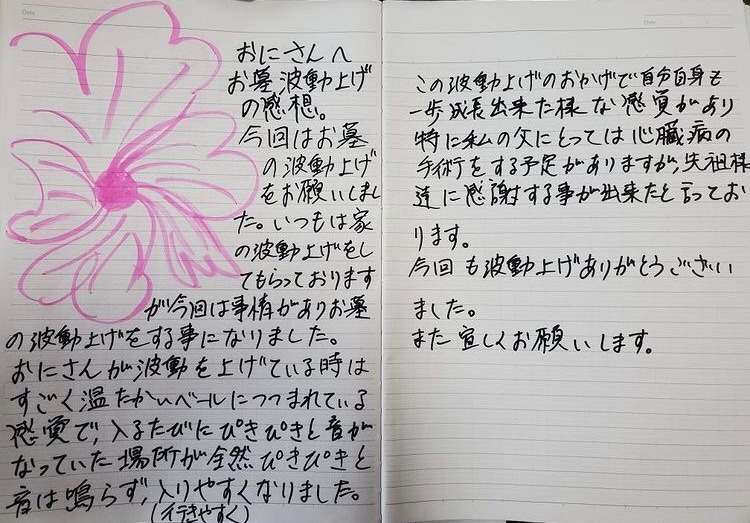 おにさんへ
お墓波動上げ
の感想。
今回はお墓
の波動上げ
をお願いしまし
た。いつもは家
の波動上げをし
てもらっております
が今回は事情がありお墓
の波動上げをする事になりました。
おにさんが波動を上げている時は
すごく温たかいベールにつつまれている
感覚で、入るたびにぴきぴきと音が
なっていた場所が全然ぴきぴきと
音は鳴らず、入りやすくなりました。
(行きやすく)
この波動上げのおかげで自分自身も
一歩成長出来た様な感覚があり
特に私の父にとっては心臓病の
手術をする予定がありますが、先祖様
達に感謝する事が出来たと言ってお
ります。
今回も波動上げありがとうござい
ました。
また宜しくお願いします。